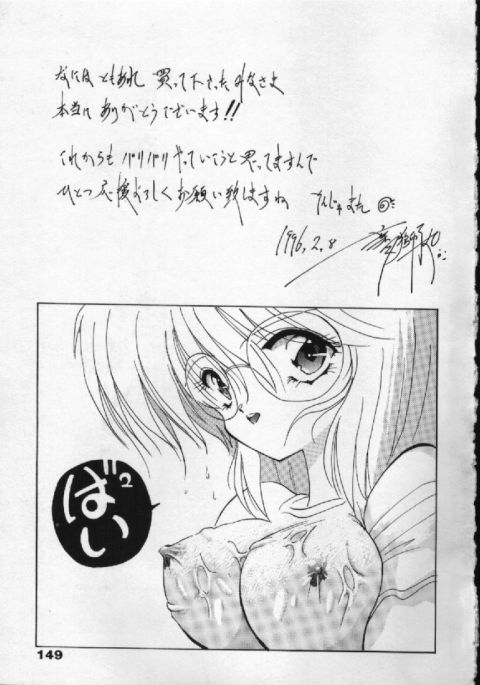 なにはともあれ 買って下さったみなさま
本当にありがとうございます!!
これからもバリバリやっていこうと思ってますんで
ひとつ応援よろしくお願い致しますね
1996.2.8
ばい2
149